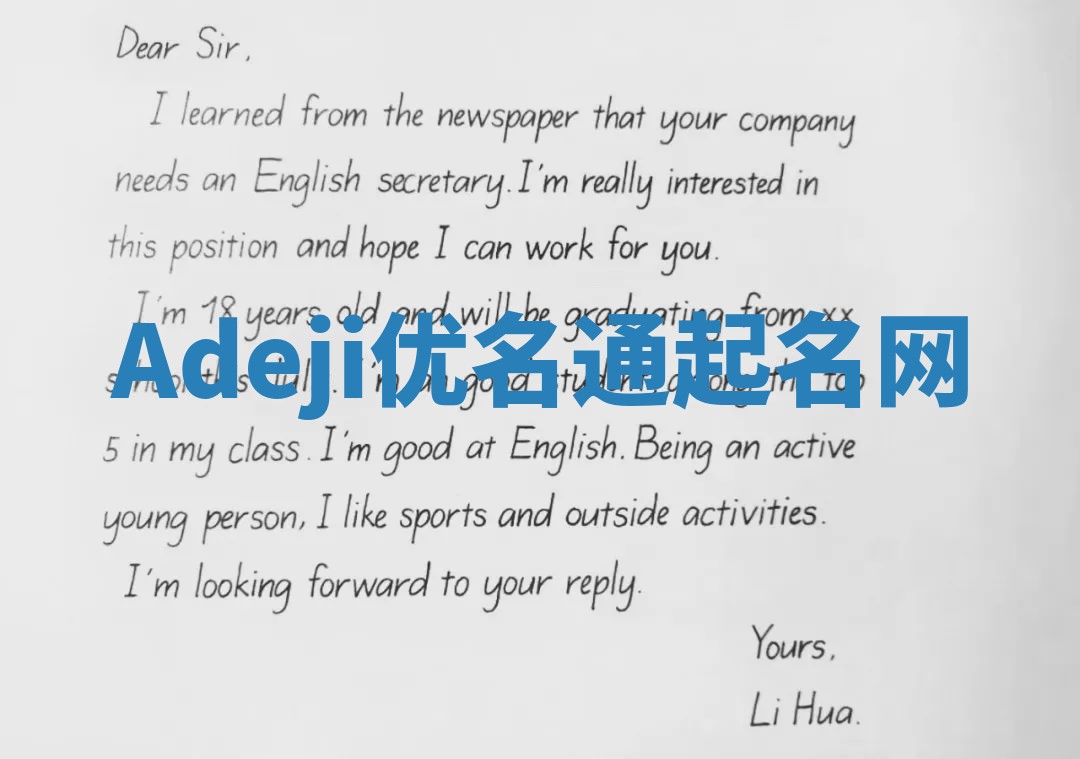 Dear Sir,
I learned from the newspaper that your company
needs an English secretary. I'm really interested in
this position and hope I can work for you.
I'm 18 years old and will be graduating from xx
Adeji优名通起名网
school this July. I'm a good student, among the top
5 in my class. I'm good at English. Being an active
young person, I like sports and outside activities.
I'm looking forward to your reply.
Yours,
Li Hua.